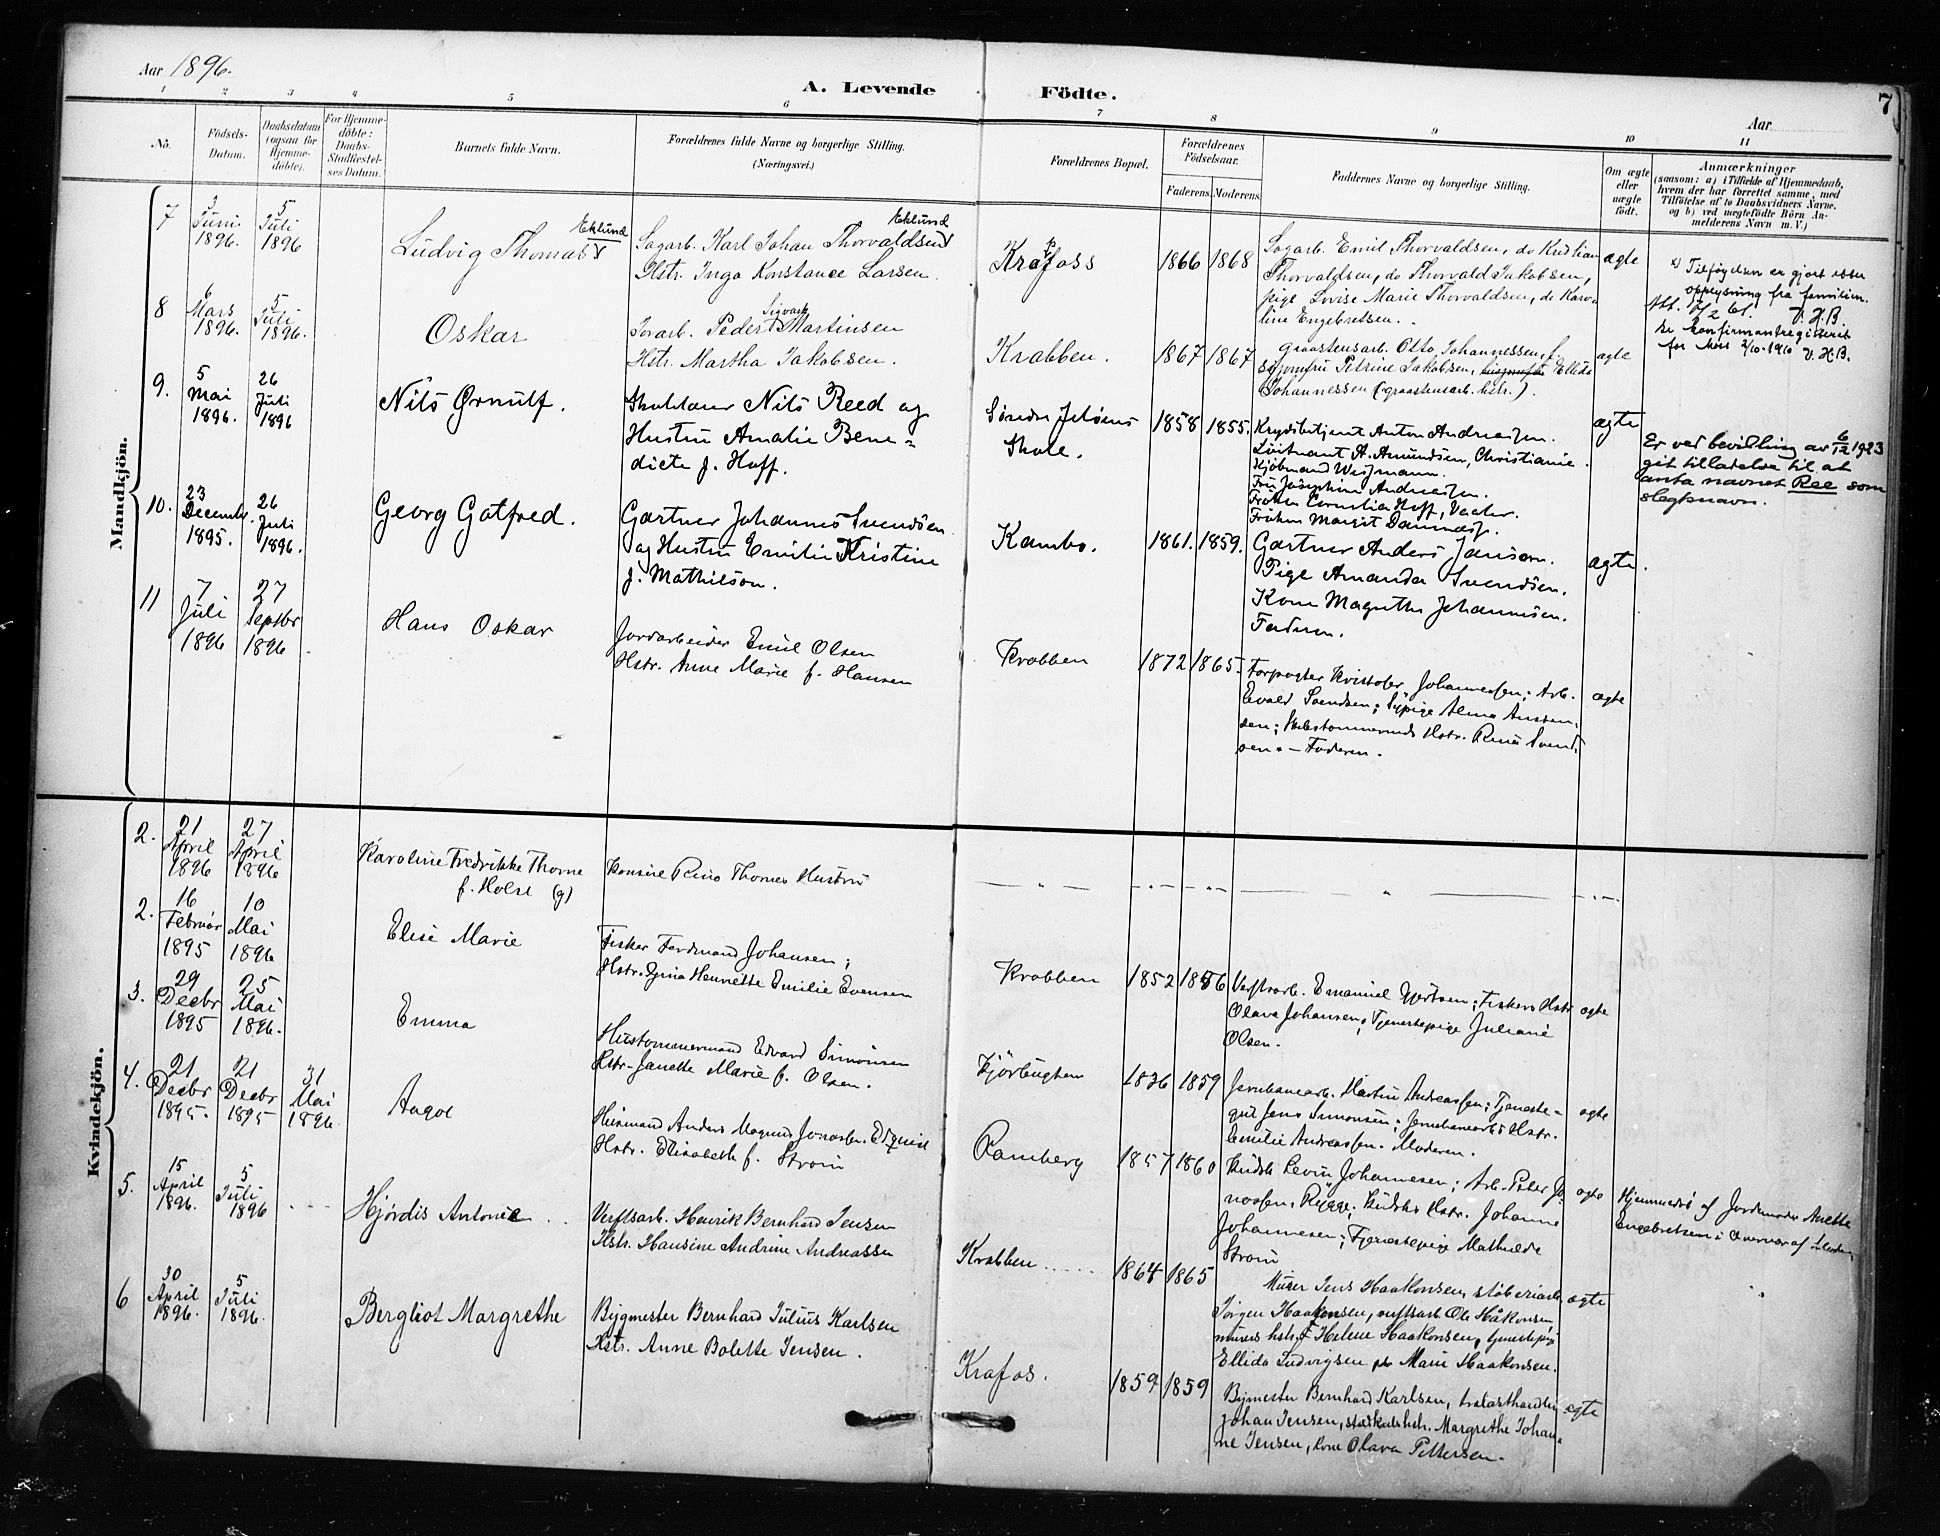 Aar 1896.
A. Levende Födte.
7
Aar
1 2 3 4 5 6 7 8 9 10 11
No.
Födsels-
Datum.
Daabsdatum
(ogsaa for
Hjemme-
döbte).
For Hjemme-
döbte:
Daabs-
Stadfæstel-
ses Datum.
Barnets fulde Navn.
Forældrenes fulde Navne og borgerlige Stilling.
(Næringsvei.)
Forældrenes Bopæl.
Forældrenes
Födselsaar.
Faderens. Moderens.
Faddernes Navne og borgerlige Stilling.
Om ægte
eller
uægte
födt.
Anmærkninger
(saasom: a) i Tilfælde af Hjemmedaab,
hvem der har forrettet samme, med
Tilföielse af to Daabsvidners Navne,
og b) ved uægtefödte Börn An-
melderens Navn m. V.)
Mandkjön.
7
3
Juni
1896.
5
Juli
1896
Eklund
Ludvig Thomas
Eklund
Sagarb. Karl Johan Thorvaldsen
Hstr. Inga Konstance Larsen.
Krafoss
1866 1868
Sagarb. Emil Thorvaldsen, do Kristian
Thorvaldsen, do Thorvald Jakobsen,
pige Lovise Marie Thorvaldsen, do Karo-
line Engebretsen.
ægte
x) Tilføyelsen er gjort etter
opplysning fra familien.
V. H. B
Se konfirmantregisteret
for Moss 2/10-1910 V. H. B.
8
6
Mars
1896.
5
Juli
1896.
Oskar
Sigvart
Jorarb. Peder Martinsen
Hstr. Martha Jakobsen.
Krabben.
1867 1867
graastensarb. Otto Johannessen,
syjomfru Petrine Jakobsen, Ellida
Johannessen (graastensarb. hstr.).
ægte
9.
5
Mai
1896.
26
Juli
1896
Nils Ørnulf.
Skolelærer Nils Reed og
Hustru Amalie Bene-
dicte f. Hoff.
Søndre Jeløens
Skole.
1858 1855.
Krydsbetjent Anton Andreasen.
Løitnant A. Amundsen, Christiania.
Kjøbmand Wissmann.
Fru Josephine Andreasen.
Frøken Cornelia Hoff, Vaaler.
Frøken Margit
ægte
Er ved bevilling av 6/12 1923
git tilladelse til at
anta navnet Ree som
slegtsnavn.
10.
23
Decembr.
1895.
26
Juli
1896.
Georg Gotfred.
Gartner Johannes Svendsen
og Hustru Emilie Kristine
f. Mathilson.
Kambo.
1861. 1859.
Gartner Anders Jansen.
Pige Amanda Svendsen.
Kone Magrethe Johannesen.
Faderen.
ægte.
11
7
Juli
1896
27
Septbr
1896
Hans Oskar
Jordarbeider Emil Olsen
Hstr. Anne Marie f. Hansen
Krabben
1872 1865.
Forpagter Kristofer Johannesen; Arb.
Evald Svendsen; Sypige Alma
sen; Hstr. Rina Svend-
sen. – Faderen.
ægte
Kvindekjön.
2.
21
April
1896
27
April
1896
Karoline Fredrikke Thorne
f. Holst (g)
Thornes Hustru
2.
16
Februar
1895
10
Mai
1896
Elise Marie
Fisker Ferdinand Johansen;
Hstr. Henriette Emilie Evensen
Krabben
1852 1856
Verftsarb. Emanuel; Fiskers Hstr
Olava Johansen; Tjenestepige Juliane
Olsen.
ægte
3.
29
Decbr
1895
25
Mai
1896.
Emma
Hustømmermand Edvard Simonsen
Hstr. Janette Marie f. Olsen.
Kjørbugten
1836 1859
Jernbanearb. Martin Andreassen; Tjeneste-
gut Jens Simonsen; Jernbanearb's Hstr.
Emilie Andreassen. Moderen.
ægte
4.
21
Decbr
1895.
21
Decbr
1895
31
Mai
1896
Aagot
Husmand Anders Magnus Jonassen Edquist
Hstr. Elisabeth f. Strøm
Ramberg
1857 1860
Kudsk Levin Johannesen; Arb. Peter Jo-
nassen, Rygge; Kudsks Hstr. Johanne
Johannesen; Tjenestepige Mathilde
Strøm
ægte
Hjemmedøbt af Jordemoder Anette
Engebretsen i Overvær af
5.
15
April
1896.
5
Juli
1896
Hjørdis Antonie
Verftsarb. Henrik Bernhard Jensen
Hstr. Hansine Andrine Andreassen
Krabben
1864 1865
Murer Jens Haakonsen, støberiarb.
Jørgen Haakonsen, verftsarb Ole Håkonsen,
murers hstr. Helene Haakonsen, tjenestepige
Ellida Ludvigsen, Marie Haakonsen.
ægte
6
30
April
1896.
5
Juli
1896.
Bergliot Margrethe
Bygmester Bernhard Julius Karlsen
Hstr. Anne Bolette Jensen.
Krafos.
1859 1859
Bygmester Bernhard Karlsen, trælasthandler
Johan Jensen, hstr. Margrethe Johan-
ne Jensen, kone Olava Pettersen.
ægte